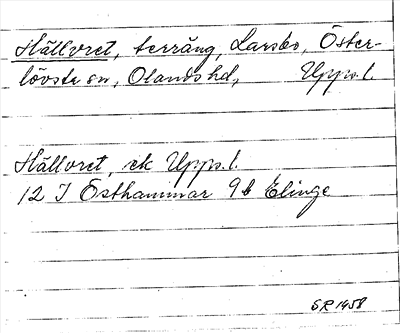 Hällvret, terräng, Larsbo, Öster-
lövsta sn, Olands hd, Upps. l.
Hällvret, ek Upps. l.
12 I Östhammar 9 b Elinge
SR 1958